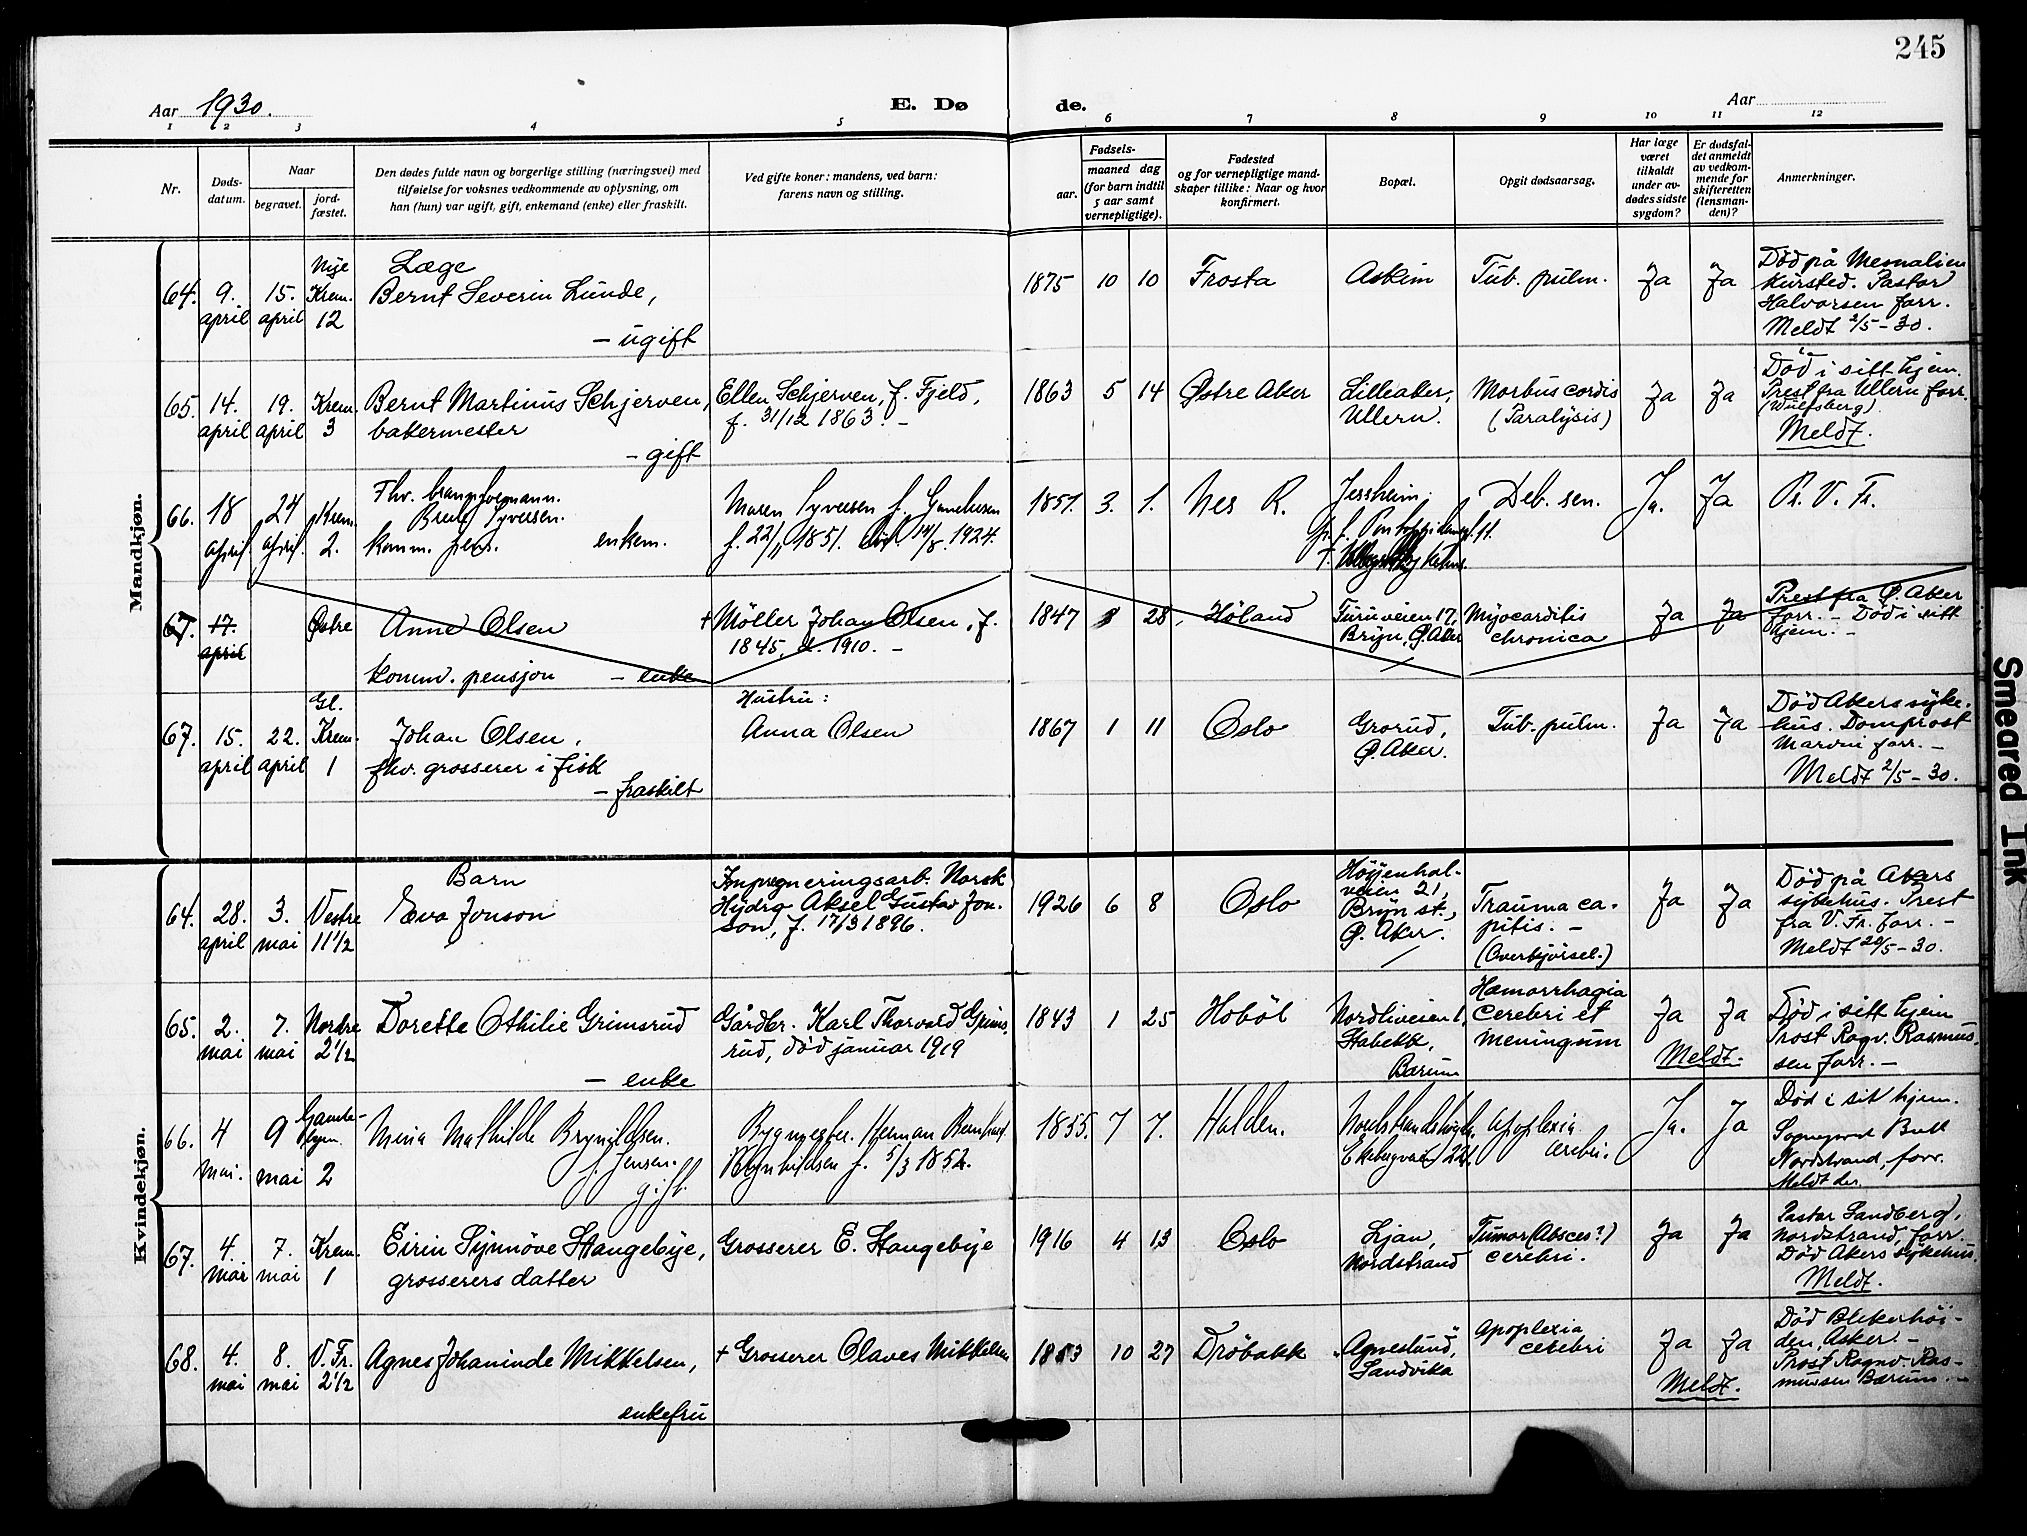 245
Aar 1930.
E. Dø de.
Aar
1 2 3 4 5 6 7 8 9 10 11 12
Nr.
Døds-
datum.
Naar
begravet.
jord-
fæstet.
Den dødes fulde navn og borgerlige stilling (næringsvei) med
tilføielse for voksnes vedkommende av oplysning, om
han (hun) var ugift, gift, enkemand (enke) eller fraskilt.
Ved gifte koner: mandens, ved barn:
farens navn og stilling.
Fødsels-
aar.
maaned dag
(for barn indtil
5 aar samt
vernepligtige).
Fødested
og for vernepligtige mand-
skaper tillike: Naar og hvor
konfirmert.
Bopæl.
Opgit dødsaarsag.
Har læge
været
tilkaldt
under av-
dødes sidste
sygdom?
Er dødsfal-
det anmeldt
av vedkom-
mende for
skifteretten
(lensman-
den)?
Anmerkninger.
Mandkjøn.
64.
9.
april
15.
april
Nye
Krem.
12
Læge
Bernt Severin Lunde,
- ugift
1875 10 10
Frosta
Askim
Tub. pulm.
Ja
Ja
Død på Mesnalien
kursted. Pastor
Halvorsen forr.
Meldt 2/5-30.
65.
14.
april
19.
april
Krem.
3
Bernt Martinus Schjerven,
bakermester
- gift
Ellen Schjerven, f. Fjeld,
f. 31/12 1863. -
1863 5 14
Østre Aker
Lilleaker,
Ullern.
Morbus cordis
(Paralysis)
Ja
Ja
Død i sitt hjem.
Prest fra Ullern forr.
(Wulfsberg).
Meldt.
66.
18
april
24
april.
Krem.
2.
Fhv.
Syversen.
komm. pens.
enkem.
Maren Syversen f.
f. 22/1 1851. død 14/8. 1924.
1851. 3. 1.
Nes R.
Jessheim.
Deb. sen.
Ja.
Ja
Pr. V. Fr.
67.
17.
april
Østre
Anne Olsen
komm. pensjon - enke
+ Møller Johan Olsen, f.
1845, d. 1910. -
1847 28
Høland
Furuveien 17,
Bryn, Ø. Aker
Myocarditis
chronica
Ja
Ja
Prest fra Ø. Aker
forr. - Død i sitt
hjem. -
67.
15.
april
22.
april
Gl.
Krem.
1
Johan Olsen,
fhv. grosserer i fisk
- fraskilt
Hustru:
Anna Olsen
1867 1 11
Oslo
Grorud,
Ø. Aker.
Tub. pulm.
Ja
Ja
Død Akers syke-
hus. Domprost
forr. -
Meldt 2/5-30.
Kvindekjøn.
64.
28.
april
3.
mai
Vestre
11 1/2
Barn
Eva Jonson
Impregneringsarb. Norsk
Hydro Aksel Gustav Jon-
son, f. 17/3 1896.
1926 6 8
Oslo
Høyenhal-
veien 21,
Bryn st.,
Ø. Aker.
Trauma ca-
pitis. -
(Overkjørsel.)
Ja
Ja
Død på Akers
sykehus. Prest
fra V. Fr. forr. -
Meldt 20/5-30.
65.
2.
mai
7.
mai
Nordre
2 1/2
Dorette Othilie Grimsrud
- enke
Gårdbr. Karl Thorvald Grims-
rud, død januar 1919
1843 1 25
Hobøl
Nordliveien 1,
Stabekk,
Bærum
Hæmorrhagia
cerebri et
meningum
Ja
Ja
Meldt.
Død i sitt hjem
Prost Ragv. Rasmus-
sen forr. -
66.
4
mai.
9
mai
Gamle-
byen.
2
Mina Mathilde Brynildsen.
f. Jensen.
gift.
Bygmester. Herman Bernhard
Brynhildsen f. 5/3 1852.
1855. 7 7.
Halden.
Apoplexia
cerebri.
Ja.
Ja
Død i sit hjem.
Sogneprest Bull
Nordstrand, forr.
Meldt der.
67.
4.
mai
7.
mai
Krem.
1
Eirin Synnøve Stangebye,
grosserers datter
Grosserer E. Stangebye
1916 4 13
Oslo
Ljan,
Nordstrand
Tumor (Absces?)
cerebri.
Ja
Ja
Pastor Sandberg,
Nordstrand, forr.
Død Akers sykehus.
Meldt.
68.
4.
mai
8.
mai
V. Fr.
2 1/2
Agnes Johaninde Mikkelsen,
enkefru
+ Grosserer Olaves Mikkelsen
1853 10 27
Drøbakk
"Agneslund",
Sandvika
Apoplexia
cerebri
Ja
Ja
Meldt.
Død Blekerhøi-
den, Asker. -
Prost Ragnv. Ras-
mussen Bærum. -
Smeared Ink